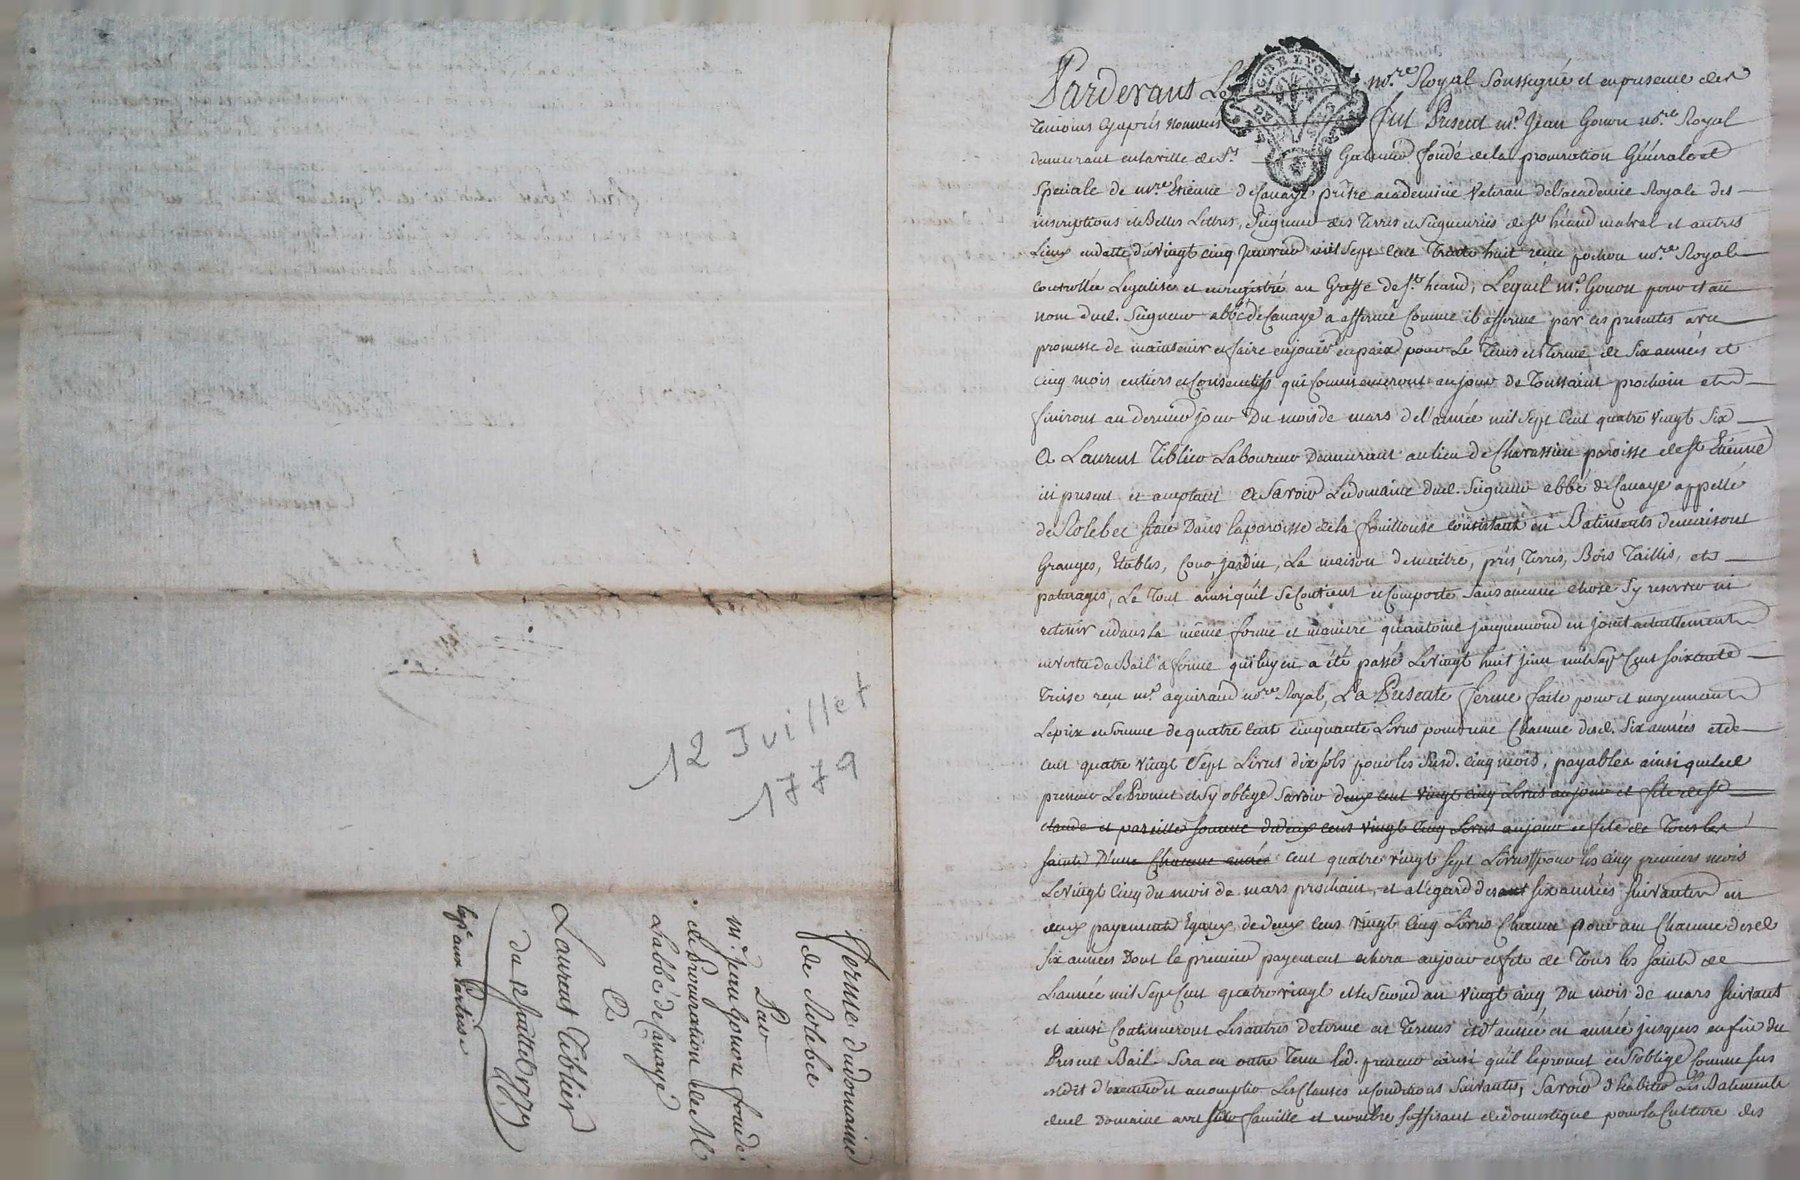 Pardevant Le no.re Royal Soussigné et en presence des
temoins cyaprés nommés fut Present m.e Jean Gonon no.re Royal
demeurant en la ville de S.t Galmier fondé de la procuration Générale et
Speciale de m.re Etienne de Canaye prêtre academicien Veteran de l'academie Royale des
inscriptions et Belles Lettres, Seigneur des Terres et Seigneuries de S.t héand malval et autres
Lieux en datte du vingt cinq Janvier mil Sept Cent Trente huit reçue pochon no.re Royal
controllée Legalisée et enregistrée au Greffe de S.t héand, Lequel m.e Gonon pour et au
nom dud. Seigneur abbé de Canaye a affermé Comme il afferme par ces presentes avec
promesse de maintenir et faire enjouir en paix pour Le Tems et Terme de Six années et
cinq mois entiers et Consecutifs qui Commenceront au jour de Toussaint prochain et
finiront au dernier jour Du mois de mars de l'année mil Sept Cent quatre vingt Six
A Laurent Tiblier Laboureur Demeurant au lieu de Charassieu paroisse de S.t Etienne
ici present et acceptant A Savoir Le domaine dud. Seigneur abbé de Canaye appellé
de Rolebec Scitué Dans la paroisse de la fouillouse consistant en Batiments de maisons
Granges, Etables, Cour jardin, La maison de maitre, prés, Terres, Bois Taillis, et
paturages, Le Tout ainsi qu'il Se Contient et Comporte Sans aucune chose S'y reserver ni
retenir et dans la même forme et maniere qu'antoine jacquemond en jouit actuellement
en vertu du Bail a ferme qui luy en a été passé Le vingt huit juin mil Sept Cent Soixante
Treise reçu m.e aguiraud no.re Royal, La Presente ferme faite pour et moyennant
Le prix et Somme de quatre Cent Cinquante Livres pour une Chacune desd. Six années et de
cent quatre vingt Sept Livres dix Sols pour les Susd. cinq mois, payables ainsi que led
preneur Le Promet et S'y oblige Savoir deux cent vingt cinq Livres au jour et fête de S.t
claude et pareille Somme de deux cens vingt Cinq Livres au jour et fête de Tous les
Saints D'une Chacune année cent quatre vingt Sept Livres pour les cinq premiers mois
Le vingt Cinq du mois de mars prochain, et a l'égard des Six années Suivantes en
deux payements Egaux de deux cens vingt Cinq Livres Chacun pour une Chacune desd
Six années Dont le premier payement echera au jour et fête de Tous les Saints de
L'année mil Sept Cent quatre vingt et le Second au vingt cinq Du mois de mars Suivant
et ainsi Continueront Les autres de terme en Termes et d'année en année jusques en fin du
Present Bail. Sera en outre Tenu led. preneur ainsi qu'il le promet et S'oblige Comme Sus
est dit d'executer et accomplir Les Clauses et Conditions Suivantes, Savoir d'habiter Les Batiments
dud Domaine avec Sa famille et nombre Suffisant de domestique pour la Culture des
12 Juillet
1779
Ferme du domaine
de Rolebec
Par
m.e Jean Gonon fondé
de Procuration de M
L'abbé de Canaye
A
Laurent Tiblier
du 12 Juillet 1779
Exp.é aux Parties